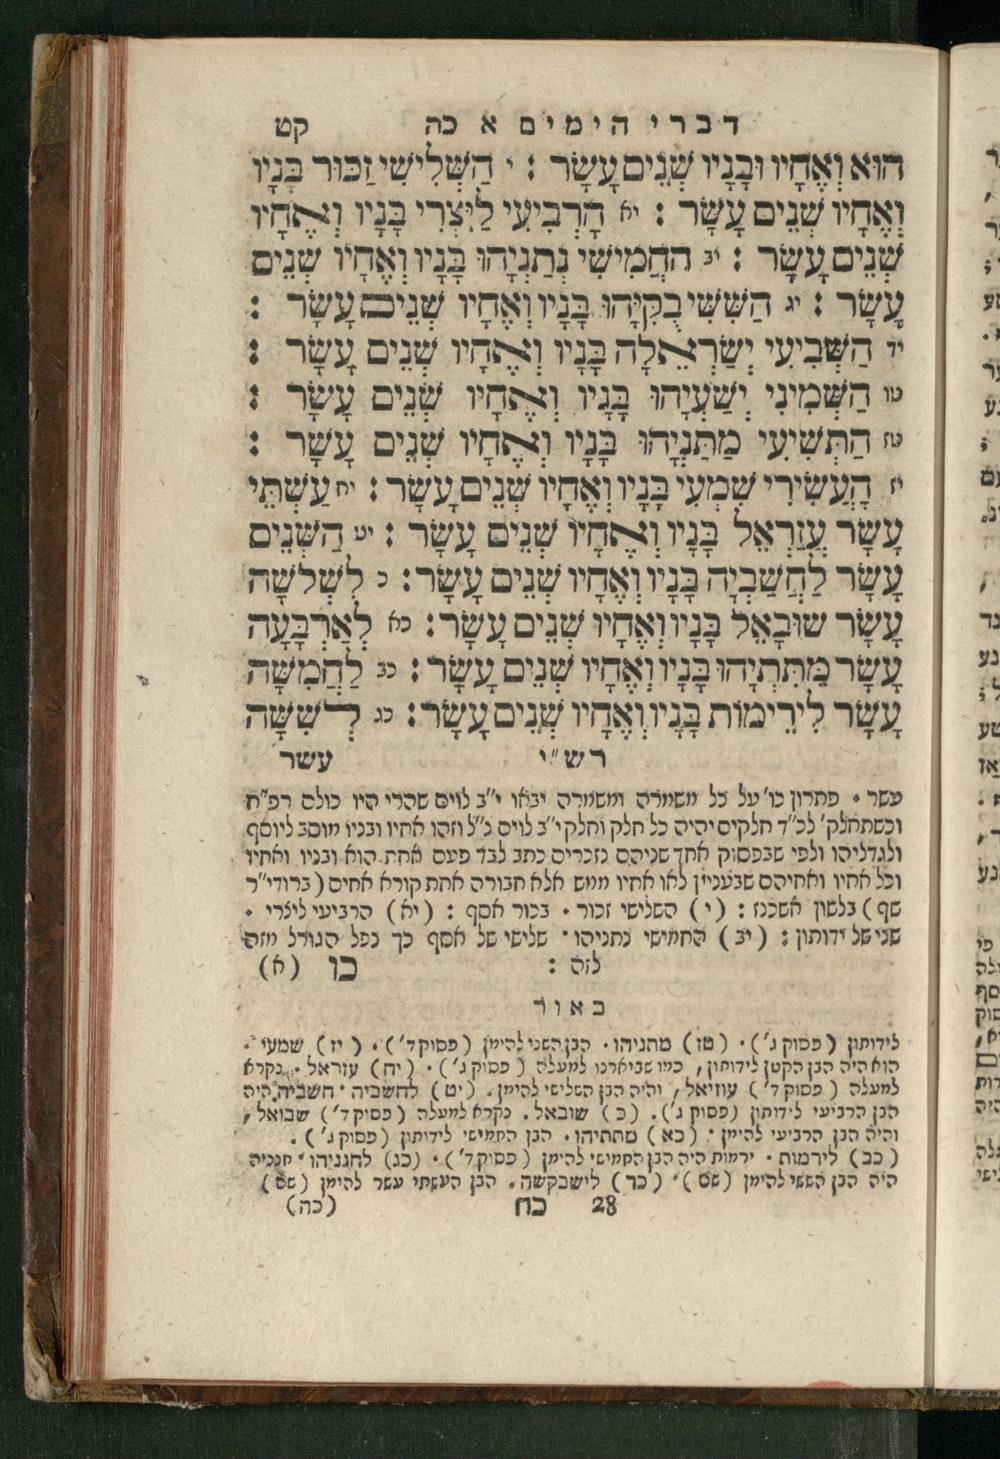 דברי הימים א כה קט
הוּא וְאֶחָיו וּבָנָיו שְׁנֵים עָשָׂר : י הַשְּׁלִישִׁי זַכּוּר בָּנָיו
וְאֶחָיו שְׁנֵים עָשָׂר : יא הָרְבִיעִי לַיִּצְרִי בָּנָיו וְאֶחָיו
שְׁנֵים עָשָׂר : יב הַחֲמִישִׁי נְתַנְיָהוּ בָּנָיו וְאֶחָיו שְׁנֵים
עָשָׂר : יג הַשִּׁשִּׁי בֻקִּיָּהוּ בָּנָיו וְאֶחָיו שְׁנֵים עָשָׂר :
יד הַשְּׁבִיעִי יְשַׂרְאֵלָה בָּנָיו וְאֶחָיו שְׁנֵים עָשָׂר :
טו הַשְּׁמִינִי יְשַׁעְיָהוּ בָּנָיו וְאֶחָיו שְׁנֵים עָשָׂר :
טז הַתְּשִׁיעִי מַתַּנְיָהוּ בָּנָיו וְאֶחָיו שְׁנֵים עָשָׂר :
יז הָעֲשִׂירִי שִׁמְעִי בָּנָיו וְאֶחָיו שְׁנֵים עָשָׂר : יח עַשְׁתֵּי
עָשָׂר עֲזַרְאֵל בָּנָיו וְאֶחָיו שְׁנֵים עָשָׂר : יט הַשְּׁנֵים
עָשָׂר לַחֲשַׁבְיָה בָּנָיו וְאֶחָיו שְׁנֵים עָשָׂר : כ לִשְׁלֹשָׁה
עָשָׂר שׁוּבָאֵל בָּנָיו וְאֶחָיו שְׁנֵים עָשָׂר : כא לְאַרְבָּעָה
עָשָׂר מַתִּתְיָהוּ בָּנָיו וְאֶחָיו שְׁנֵים עָשָׂר : כב לַחֲמִשָּׁה
עָשָׂר לִירֵימוֹת בָּנָיו וְאֶחָיו שְׁנֵים עָשָׂר : כג לְשִׁשָּׁה
רש"י עשר
עשר . פתרון כו' על כל משמרה ומשמרה יבאו י"ב לוים שהרי היו כולם רפ"ח
וכשתחלק' לכ"ד חלקים יהיה כל חלק וחלק י"ב לוים כ"ל וזהו אחיו ובניו מוסב ליוסף
ולגדליהו ולפי שבפסוק אחד שניהם נזכרים כתב לבד פעם אחת הוא ובניו ואחיו
וכל אחיו ואחיהם שבעניין לאו אחיו ממש אלא חבורה אחת קורא אחים (ברודי"ר
שף) בלשון אשכנז : (י) השלישי זכור . בכור אסף : (יא) הרביעי ליצרי .
שני של ידותון : (יב) החמישי נתניהו . שלישי של אסף כך נפל הגורל מזה
לזה : כו (א)
באור
לידותון (פסוק ג') . (טז) מתניהו . הבן השני להימן (פסוק ד') . (יז) שמעי .
הוא היה הבן הקטן לידותון, כמו שביארנו למעלה (פסוק ג') . (יח) עזראל . נקרא
למעלה (פסוק ד') עוזיאל, והיה הבן השלישי להימן . (יט) לחשביה . חשביה היה
הבן הרביעי לידותון (פסוק ג') . (כ) שובאל . נקרא למעלה (פסוק ד') שבואל,
והיה הבן הרביעי להימן . (כא) מתתיהו . הבן החמישי לידותון (פסוק ג') .
(כב) לירמות . ירמות היה הבן החמישי להימן (פסוק ד') . (כג) לחנניהו . חנניה
היה הבן הששי להימן (שם) . (כד) לישבקשה . הבן העשתי עשר להימן (שם)
28 כח (כה)